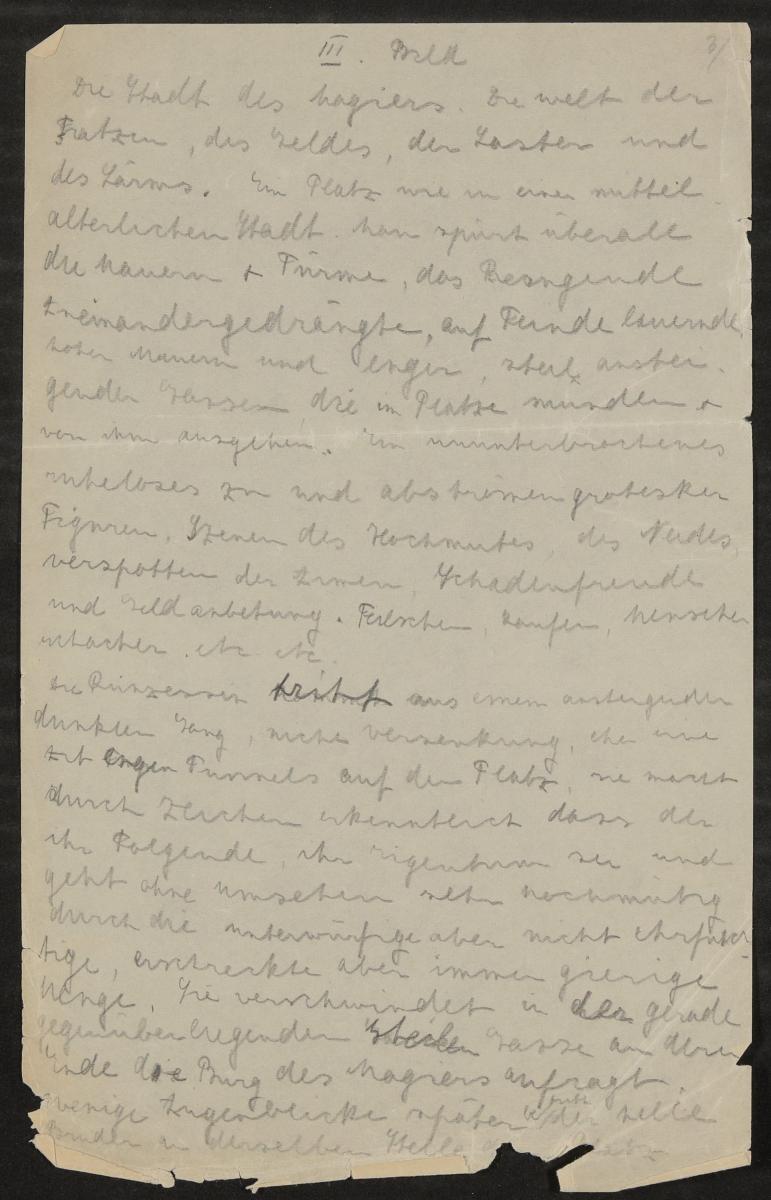 III. Bild
3/
Die Stadt des Magiers. Die Welt der
Fratzen, des Geldes, der Laster und
des Lärms. Ein Platz wie in einer mittel
alterlichen Stadt. Man spürt überall
die Mauern + Türme, das Beengende
Aneinandergedrängte, auf Feinde lauernde,
hoher Mauern und enger, steil anstei-
gender Gassen, die im Platze münden +
von ihm ausgehen. Ein ununterbrochenes
ruheloses zu und abströmen grotesker
Figuren. Szenen des Hochmutes, des Neides,
verspotten der Armen, Schadenfreude
und Geldanbetung. Feilschen, raufen, Menschen
etc etc.
Die Prinzessin tritt aus einem ansteigenden
dunklen Gang, nicht Versenkung, eher eine
Art engen Tunnels auf den Platz, sie macht
durch Zeichen erkenntlich dass der
ihr Folgende, ihr Eigentum sei und
geht ohne umsehen sehr hochmütig
durch die unterwürfige aber nicht ehrfürch-
tige, erschreckte aber immer gierige
Menge. Sie verschwindet in der gerade
gegenüberliegenden steilen Gasse an deren
Ende die Burg des Magiers aufragt.
Wenige Augenblicke später tritt der helle
Bruder an derselben Stelle den Platz